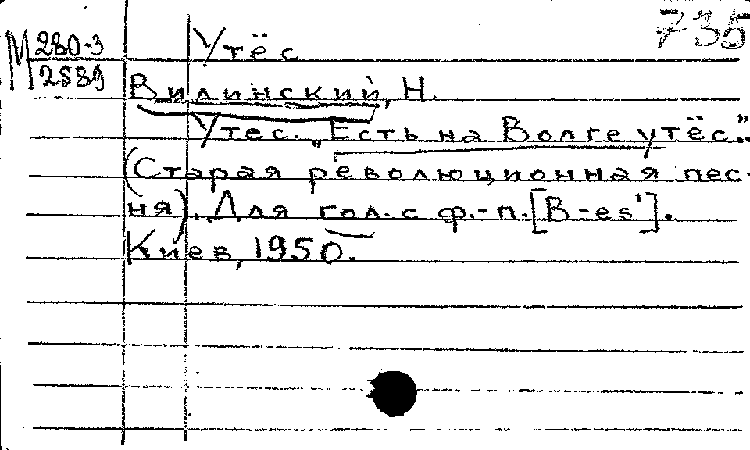 735
М 280-3
2889
Утёс
Вилинский, Н.
Утес. „Есть на Волге утёс".
(Старая революционная пес-
ня). Для гол. с ф.-п. [B-es¹].
Киев, 1950.